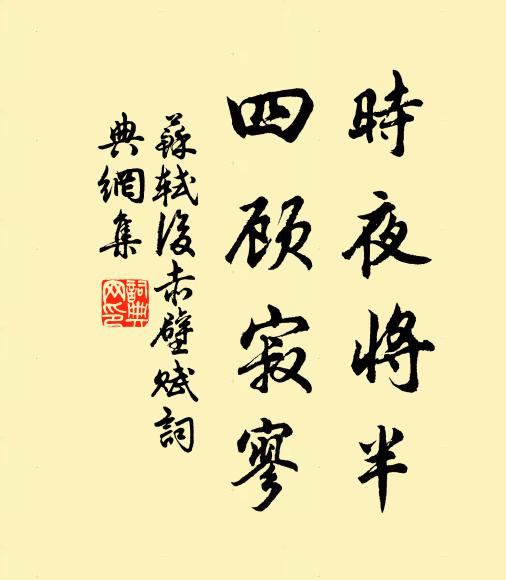 時夜將半
四顾寂寥
蘇軾後赤壁賦詞
典網集
詞典
网印